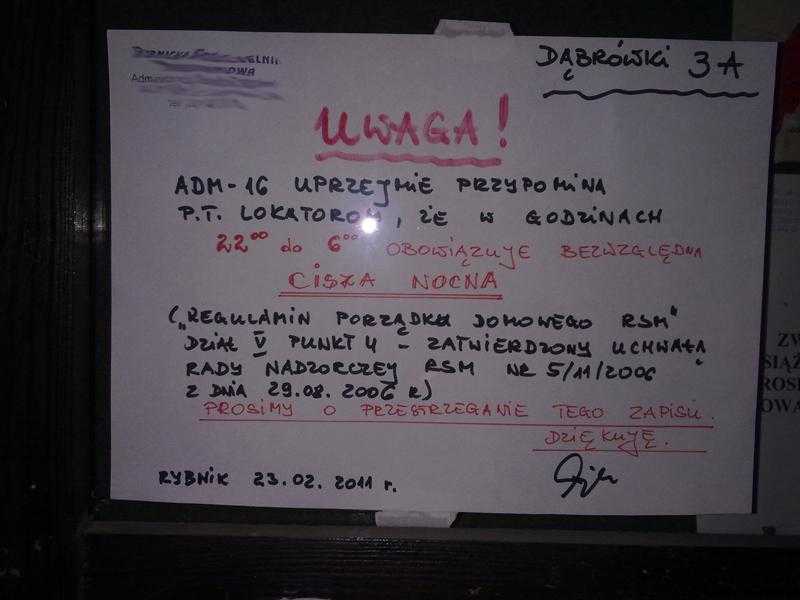 DĄBRÓWKI 3A
UWAGA!
ADM-16 UPRZEJMIE PRZYPOMINA
P.T. LOKATOROM, ŻE W GODZINACH
22⁰⁰ do 6⁰⁰ OBOWIĄZUJE BEZWZGLĘDNA
CISZA NOCNA
("REGULAMIN PORZĄDKU DOMOWEGO RSM"
DZIAŁ V PUNKT 4 - ZATWIERDZONY UCHWAŁĄ
RADY NADZORCZEJ RSM NR 5/11/2006
Z DNIA 29.08.2006 R)
PROSIMY O PRZESTRZEGANIE TEGO ZAPISU.
DZIĘKUJĘ.
RYBNIK 23.02.2011 r.